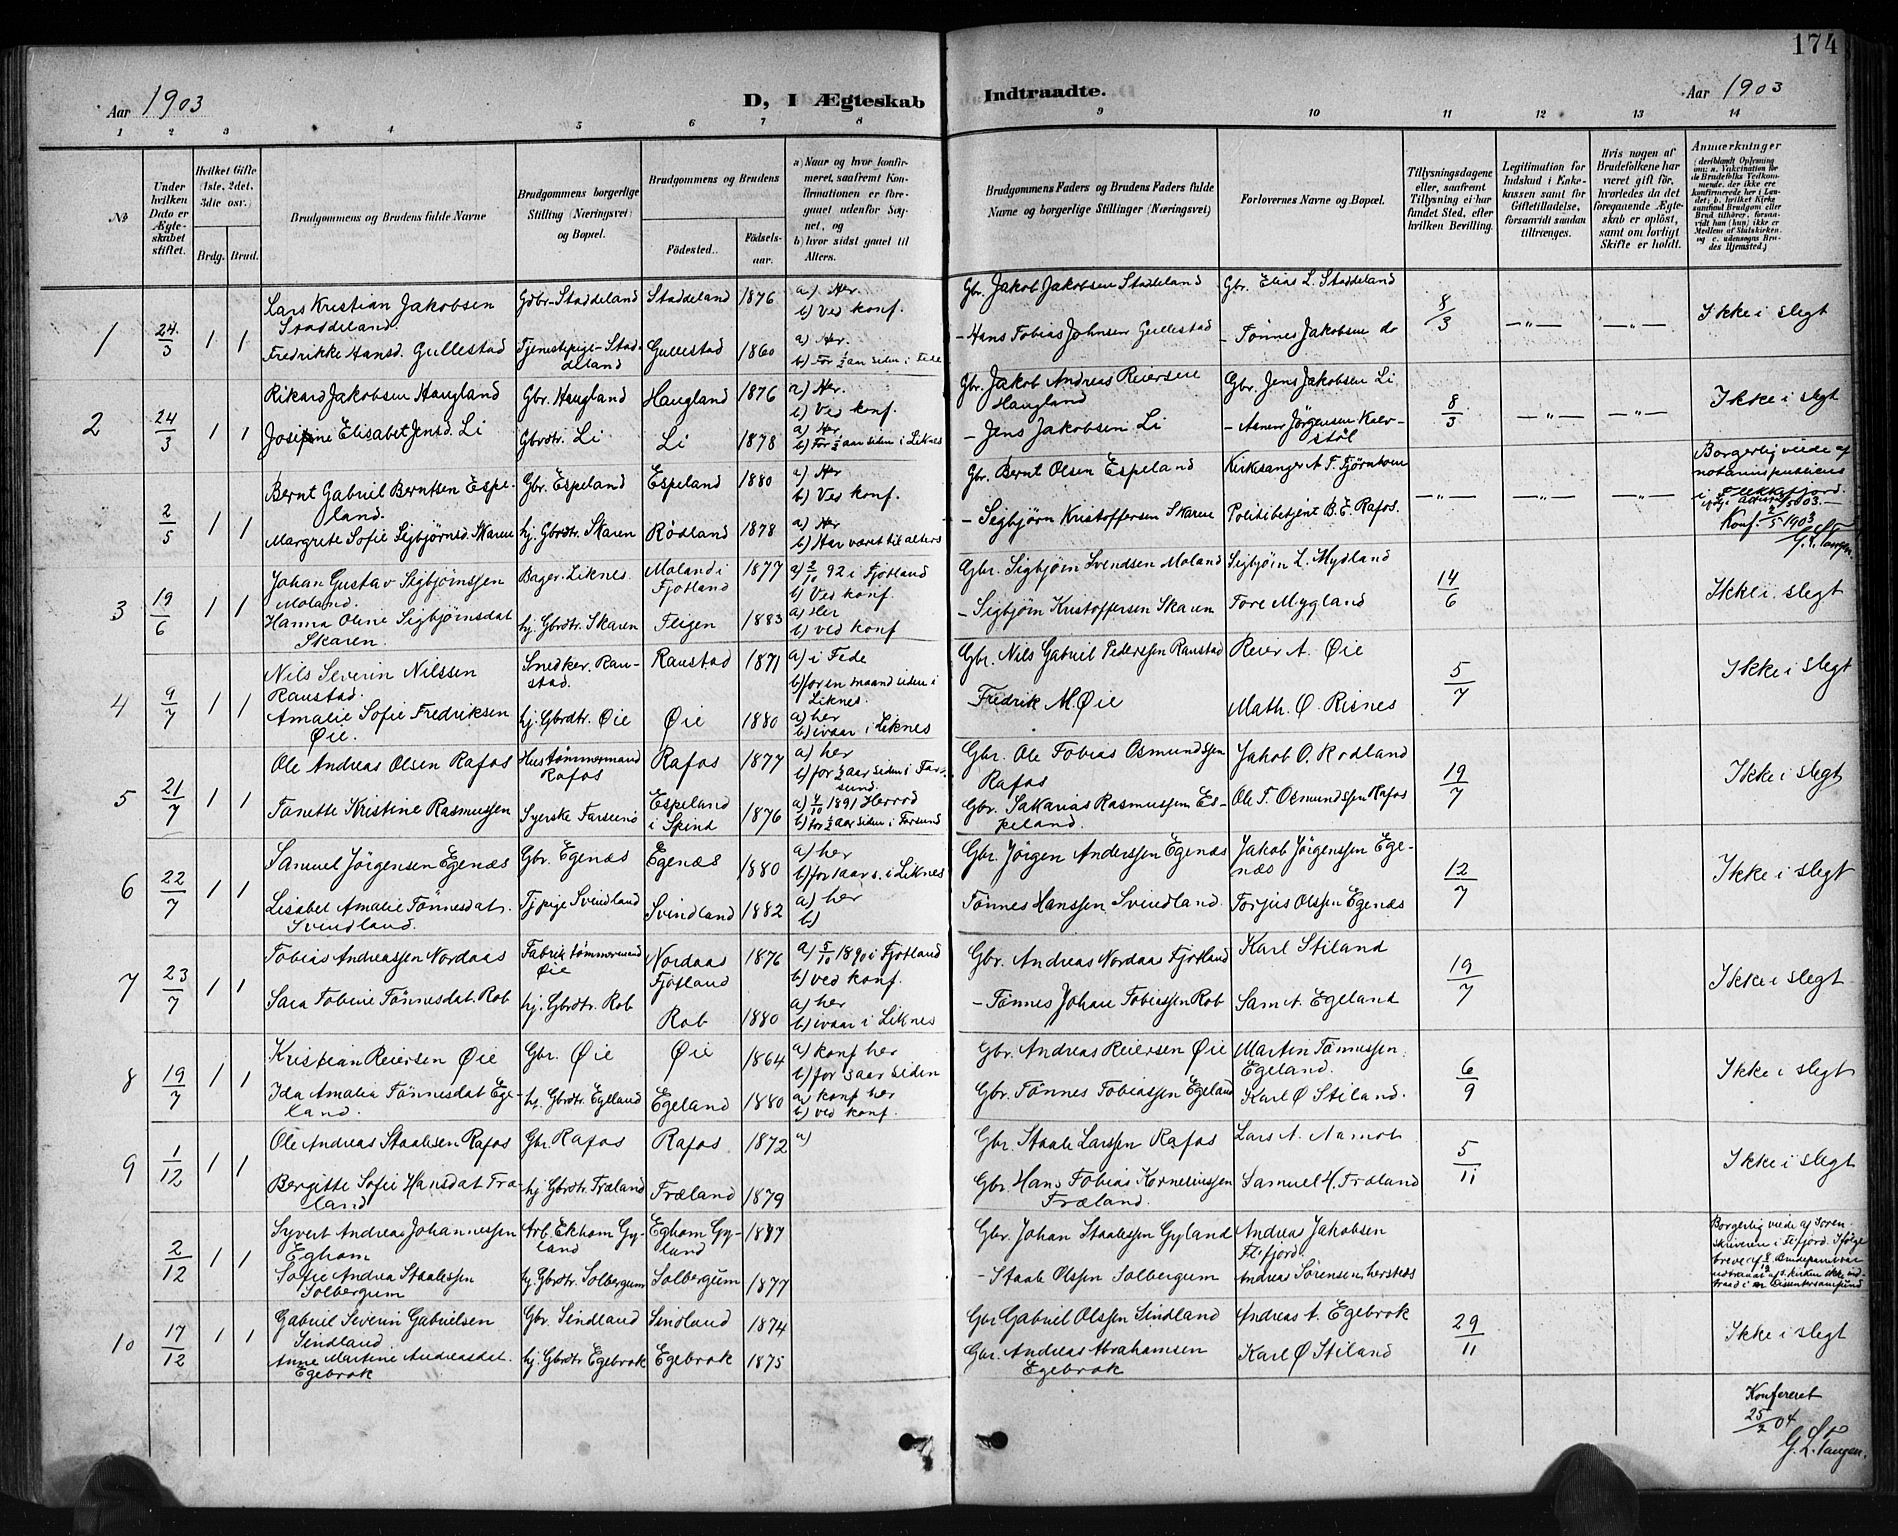 174
Aar 1903
D, I Ægteskab Indtraadte.
Aar 1903
1 2 3 4 5 6 7 8 9 10 11 12 13 14
№
Under hvilken Dato er Ægteskabet stiftet.
Hvilket Gifte (1ste, 2det, 3die osv.)
Brdg. Brud.
Brudgommens og Brudens fulde Navne
Brudgommens borgerlige Stilling (Næringsvei) og Bopæl.
Brudgommens og Brudens
Födested. Födselsaar.
a) Naar og hvor konfirmeret, saafremt Konfirmationen er foregaaet udenfor Sognet, og
b) hvor sidst gaaet til Alters.
Brudgommens Faders og Brudens Faders fulde Navne og borgerlige Stillinger (Næringsvei)
Forlovernes Navne og Bopæl.
Tillysningsdagene eller, saafremt Tillysning ei har fundet Sted, efter hvilken Bevilling.
Legitimation for Indskud i Enkekassen samt for Giftetilladelse, forsaavidt saadan tiltrænges.
Hvis nogen af Brudefolkene har været gift för, hvorledes da det foregaaende Ægteskab er oplöst, samt om lovligt Skifte er holdt.
Anmærkninger
(deriblandt Oplysning om: a. Vakcination for de Brudefolks Vedkommende, der ikke ere konfirmerede her i Landet; b. hvilket Kirkesamfund Brudgom eller Brud tilhörer, forsaavidt han (hun) ikke er Medlem af Statskirken, og c. udensogns Brudes Hjemsted.)
1 24/3 1 1
Lars Kristian Jakobsen Staddeland. Gdbr. Staddeland Staddeland 1876 a) Her. b) Ved konf.
Gbr. Jakob Jakobsen Stadeland Gbr. Elias L. Staddeland 8/3 —"— —"— Ikke i slegt
Fredrikke Hansd. Gullestad Tjenestepige Staddeland Gullestad 1860 a) Her. b) For ½ aar siden i Fede
- Hans Tobias Johnsen Gullestad - Tønnes Jakobsen do
2 24/3 1 1
Rikard Jakobsen Haugland Gbr. Haugland Haugland 1876 a) Her. b) Ved konf.
Gbr. Jakob Andreas Reiersen Haugland Gbr. Jens Jakobsen Li 8/3 —"— —"— Ikke i slegt
Josefine Elisabet Jensd. Li Gbrdtr. Li Li 1878 a) Her b) For ½ aar siden i Liknes
- Jens Jakobsen Li - Asmer Jørgensen Kalvstøl
2/5 1 1
Bernt Gabriel Berntsen Espeland. Gbr. Espeland Espeland 1880 a) Her b) Ved konf.
Gbr. Bernt Olsen Espeland Kirkesanger A. T. Fjørnhom —"— —"— —"—
Borgerlig viede af notarius publicus i Flekkefjord.
Konf. 2/5 1903 G. L. Tangen.
Margrete Sofie Sigbjørnsd. Skaren hj. Gbrdtr. Skaren Rødland 1878 a) Her b) Har været til alters
- Sigbjørn Kristoffersen Skaren Politibetjent B. E. Rafos.
3 19/6 1 1
Johan Gustav Sigbjørnssen Moland. Bager. Liknes. Moland i Fjotland 1877 a) 2/10 92 i Fjotland b) Ved konf.
Gbr. Sigbjørn Svendsen Moland Sigbjørn L. Mydland 14/6 Ikke i slegt
Hanna Oline Sigbjørnsdat Skaren. hj. Gbrdtr. Skaren Fligen 1883 a) Her b) ved konf
- Sigbjørn Kristoffersen Skaren Tore Mygland
4 9/7 1 1
Nils Severin Nilssen Raustad. Snedker. Raustad. Raustad 1871 a) i Fede b) for en maaned siden i Liknes.
Gbr. Nils Gabriel Pederssen Raustad Reier A. Øie 5/7 Ikke i slegt
Amalie Sofie Fredriksen Øie. hj. Gbrdtr. Øie Øie 1880 a) her b) ivaar i Liknes
Fredrik M. Øie Math. Ø. Risnes
5 21/7 1 1
Ole Andreas Olsen Rafos Hustømmermand Rafos Rafos 1877 a) her b) for ½ aar siden i Farsund.
Gbr. Ole Tobias Osmundssen Rafos Jakob O. Rodland 19/7 Ikke i slegt
Tanette Kristine Rasmussen Syerske Farsund Espeland i Spind 1876 a) 4/10 1891 Herred b) for ½ aar siden i Farsund
Gbr. Sakarias Rasmussen Espeland. Ole T. Osmundssen Rafos
6 22/7 1 1
Samuel Jørgensen Egenæs Gbr. Egenæs Egenæs 1880 a) her b) for 1 aar s. i Liknes
Gbr. Jørgen Anderssen Egenæs Jakob Jørgenssen Egenæs 12/7 Ikke i slegt
Lisabet Amalie Tønnesdat. Svindland. Tj. pige Svindland Svindland 1882 a) her b)
Tønnes Hanssen Svindland. Torjus Olssen Egenæs
7 23/7 1 1
Tobias Andreassen Nordaas Fabriktømmermand Øie Nordaas Fjotland 1876 a) 5/10 1890 i Fjotland b) ved konf.
Gbr. Andreas Nordaas Fjotland Karl Stiland 19/7 Ikke i slegt
Sara Tobine Tønnesdat. Rob hj. Gbrdtr. Rob Rob 1880 a) her b) ivaar i Liknes
- Tønnes Johan Tobiassen Rob Sam A. Egeland
8 19/7 1 1
Kristian Reiersen Øie Gbr. Øie Øie 1864 a) konf her b) for 3 aar siden
Gbr. Andreas Reiersen Øie Martin Tønnessen Egeland. 6/9 Ikke i slegt
Ida Amalia Tønnesdat Egeland. hj. Gbrdtr. Egeland Egeland 1880 a) konf her b) ved konf.
Gbr. Tønnes Tobiassen Egeland Karl Ø Stiland.
9 1/12 1 1
Ole Andreas Staalesen Rafos Gbr. Rafos Rafos 1872 a)
Gbr. Staale Larssen Rafos Lars A. Aamot 5/11 Ikke i slegt
Bergitte Sofie Hansdat Træland hj. Gbrdtr. Træland Træland 1879
Gbr. Hans Tobias Korneliussen Træland. Samuel H. Træland
2/12 1 1
Syvert Andreas Johannessen Egham Arb. Ekham Gyland Egham Gyland 1877
Gbr. Johan Staalessen Gyland Andreas Jakobsen Fl.fjord.
Borgerlig viede af Sorenskriveren i Fl.fjord. Ifølge breve af 8/12 Brudeparret var udtraadt af s.kirken ikke indtraad i n Dissentersamfund
Sofie Andrea Staalessen Solbergum hj. Gbrdtr. Solbergum Solbergum 1877
- Staale Olssen Solbergum Andreas Sørensen
10 17/12 1 1
Gabriel Severin Gabrielsen Sindland Gbr. Sindland Sindland 1874
Gbr Gabriel Olssen Sindland Andreas A. Egebrok 29/11 Ikke i slegt
Anne Martine Andreasdet. Egebrok hj. Gbrdtr Egebrok Egebrok 1875
Gbr. Andreas Abrahamsen Egebrok Karl Ø Stiland
Konfereret
25/2 04
G. L. Tangen.